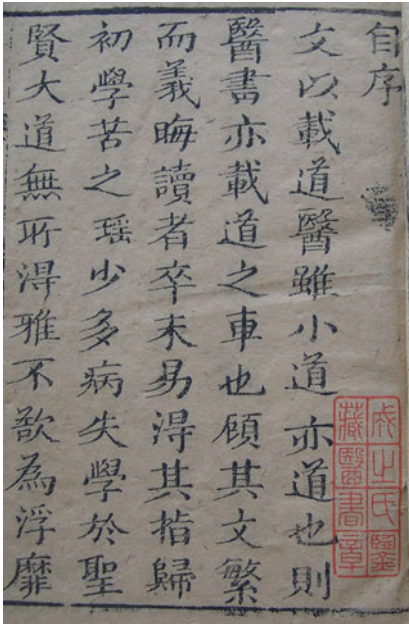 自序
文以載道醫雖小道亦道也則
醫書亦載道之車也顧其文繁
而義晦讀者卒未易得其指歸
初學苦之瑶少多病失學於聖
賢大道無所得雅不欲為浮靡
成之氏鑒
藏醫書章